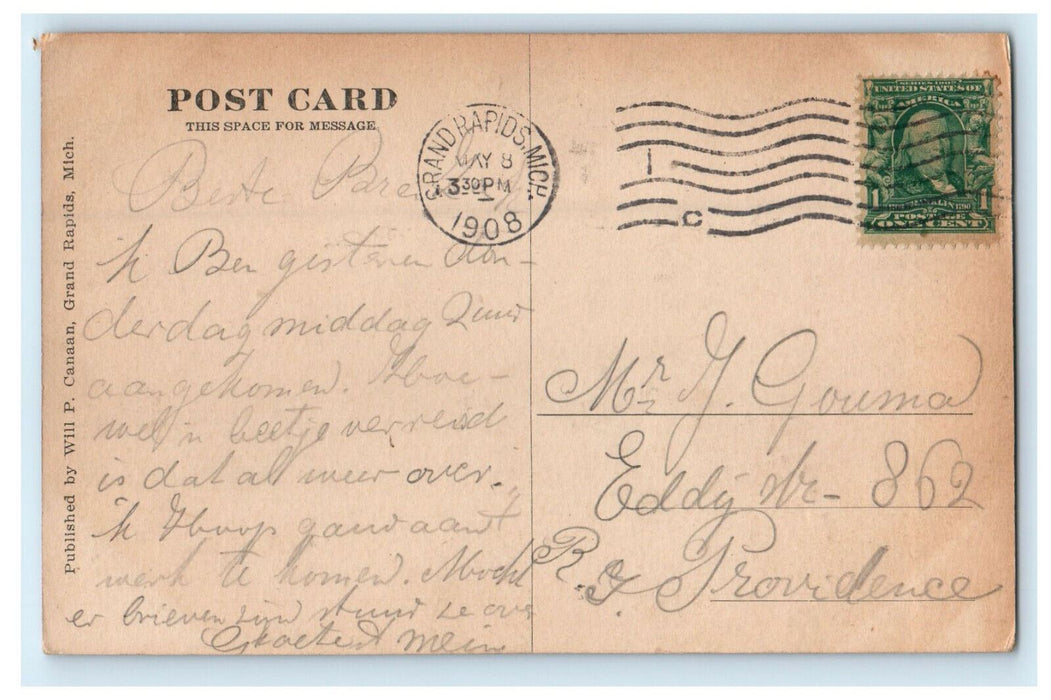 POST CARD
THIS SPACE FOR MESSAGE
Published by Will P. Canaan, Grand Rapids, Mich.
GRAND RAPIDS, MICH.
MAY 8
3 30 PM
1908
1
C
SERIES 1902
UNITED STATES OF
AMERICA
1 FRANKLIN 1
POSTAGE
ONE CENT
Beste
ik Ben gisteren don-
derdag middag 2 uur
aangekomen. Hoe-
wel n beetje verreisd
is dat al weer over.
ik Hoop gauw aant
werk te komen. Mocht
er brieven zijn stuur ze over
Gegroetend mein
Mr. J. Gouma
Eddy str - 862
R. I. Providence